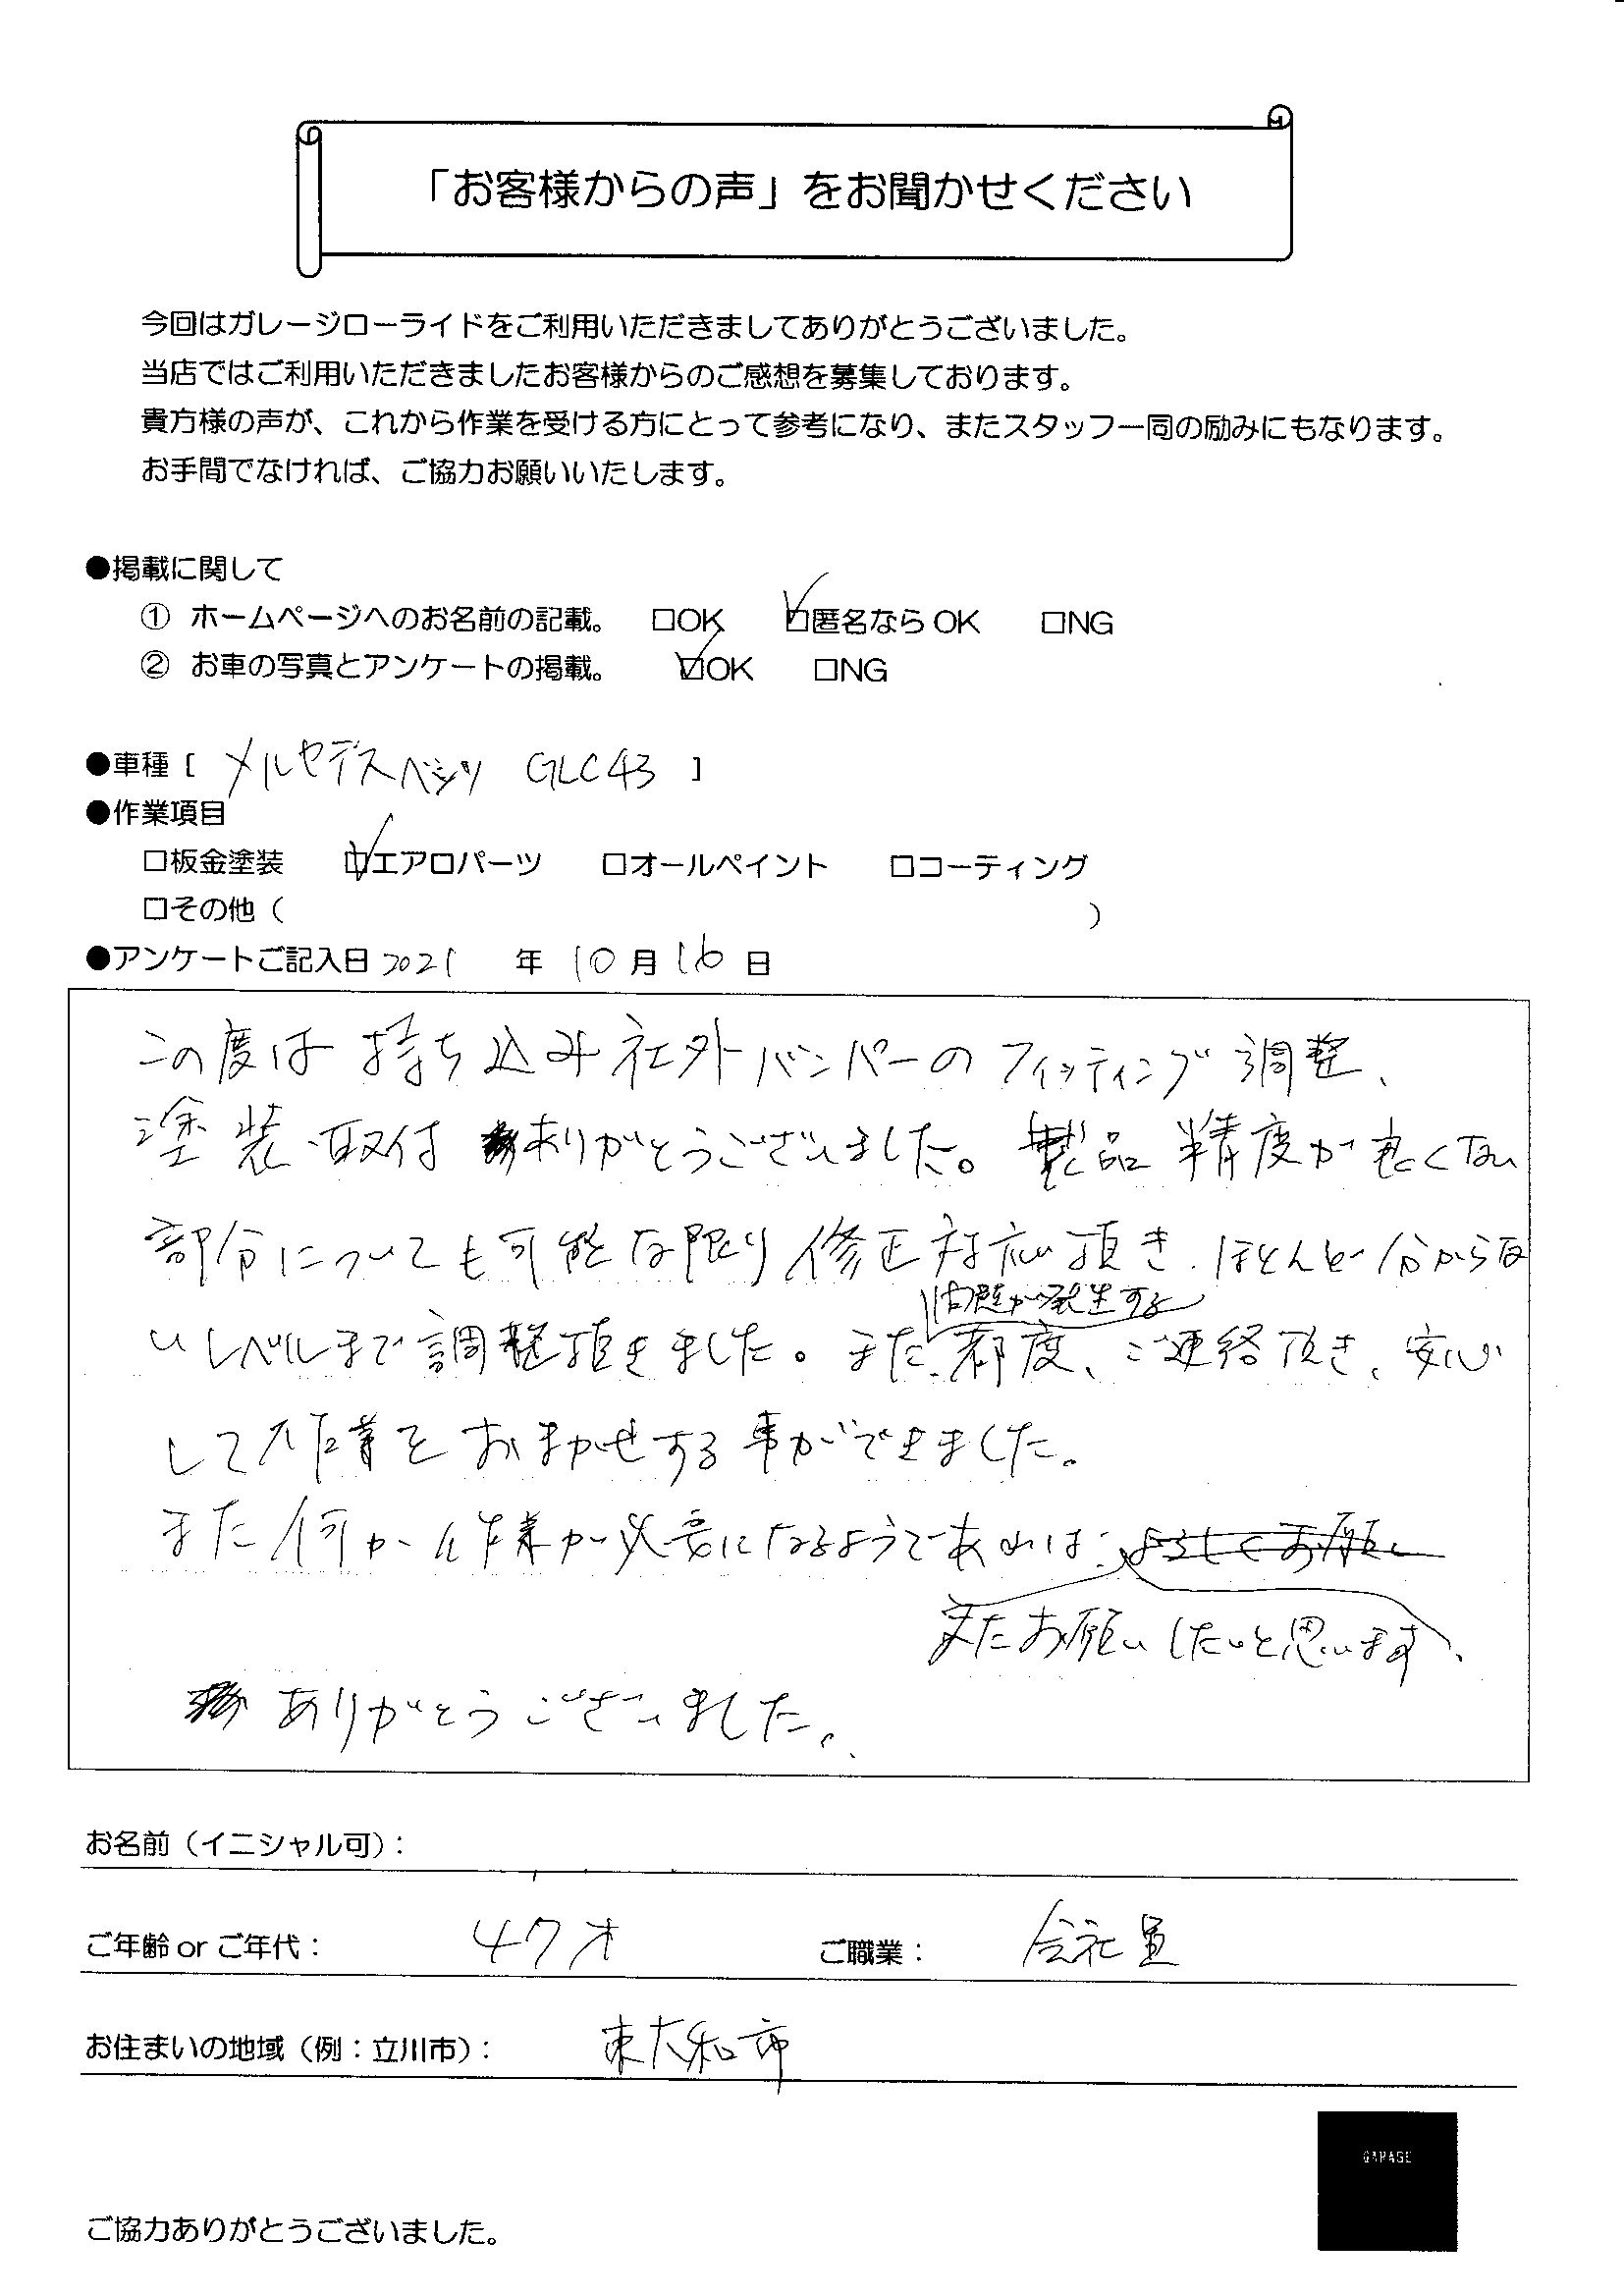 「お客様からの声」をお聞かせください
今回はガレージローライドをご利用いただきましてありがとうございました。
当店ではご利用いただきましたお客様からのご感想を募集しております。
貴方様の声が、これから作業を受ける方にとって参考になり、またスタッフ一同の励みにもなります。
お手間でなければ、ご協力お願いいたします。
●掲載に関して
① ホームページへのお名前の記載。 □OK ☑匿名なら OK □NG
② お車の写真とアンケートの掲載。 ☑OK □NG
●車種 [ メルセデスベンツ GLC43 ]
●作業項目
□板金塗装 ☑エアロパーツ □オールペイント □コーティング
□その他（ ）
●アンケートご記入日 2021 年 10 月 16 日
この度は持ち込み社外バンパーのフィッティング調整、
塗装・取付ありがとうございました。製品精度が良くない
部分についても可能な限り修正対応頂き、ほとんど分からな
問題が発生する
いレベルまで調整頂きました。また、都度、ご連絡頂き、安心
して作業をおまかせする事ができました。
また何か作業が必要になるようであれば、よろしくお願い
またお願いしたいと思います。
ありがとうございました。
お名前（イニシャル可）：
ご年齢 or ご年代： 47才 ご職業： 会社員
お住まいの地域（例：立川市）： 東大和市
GARAGE
ご協力ありがとうございました。